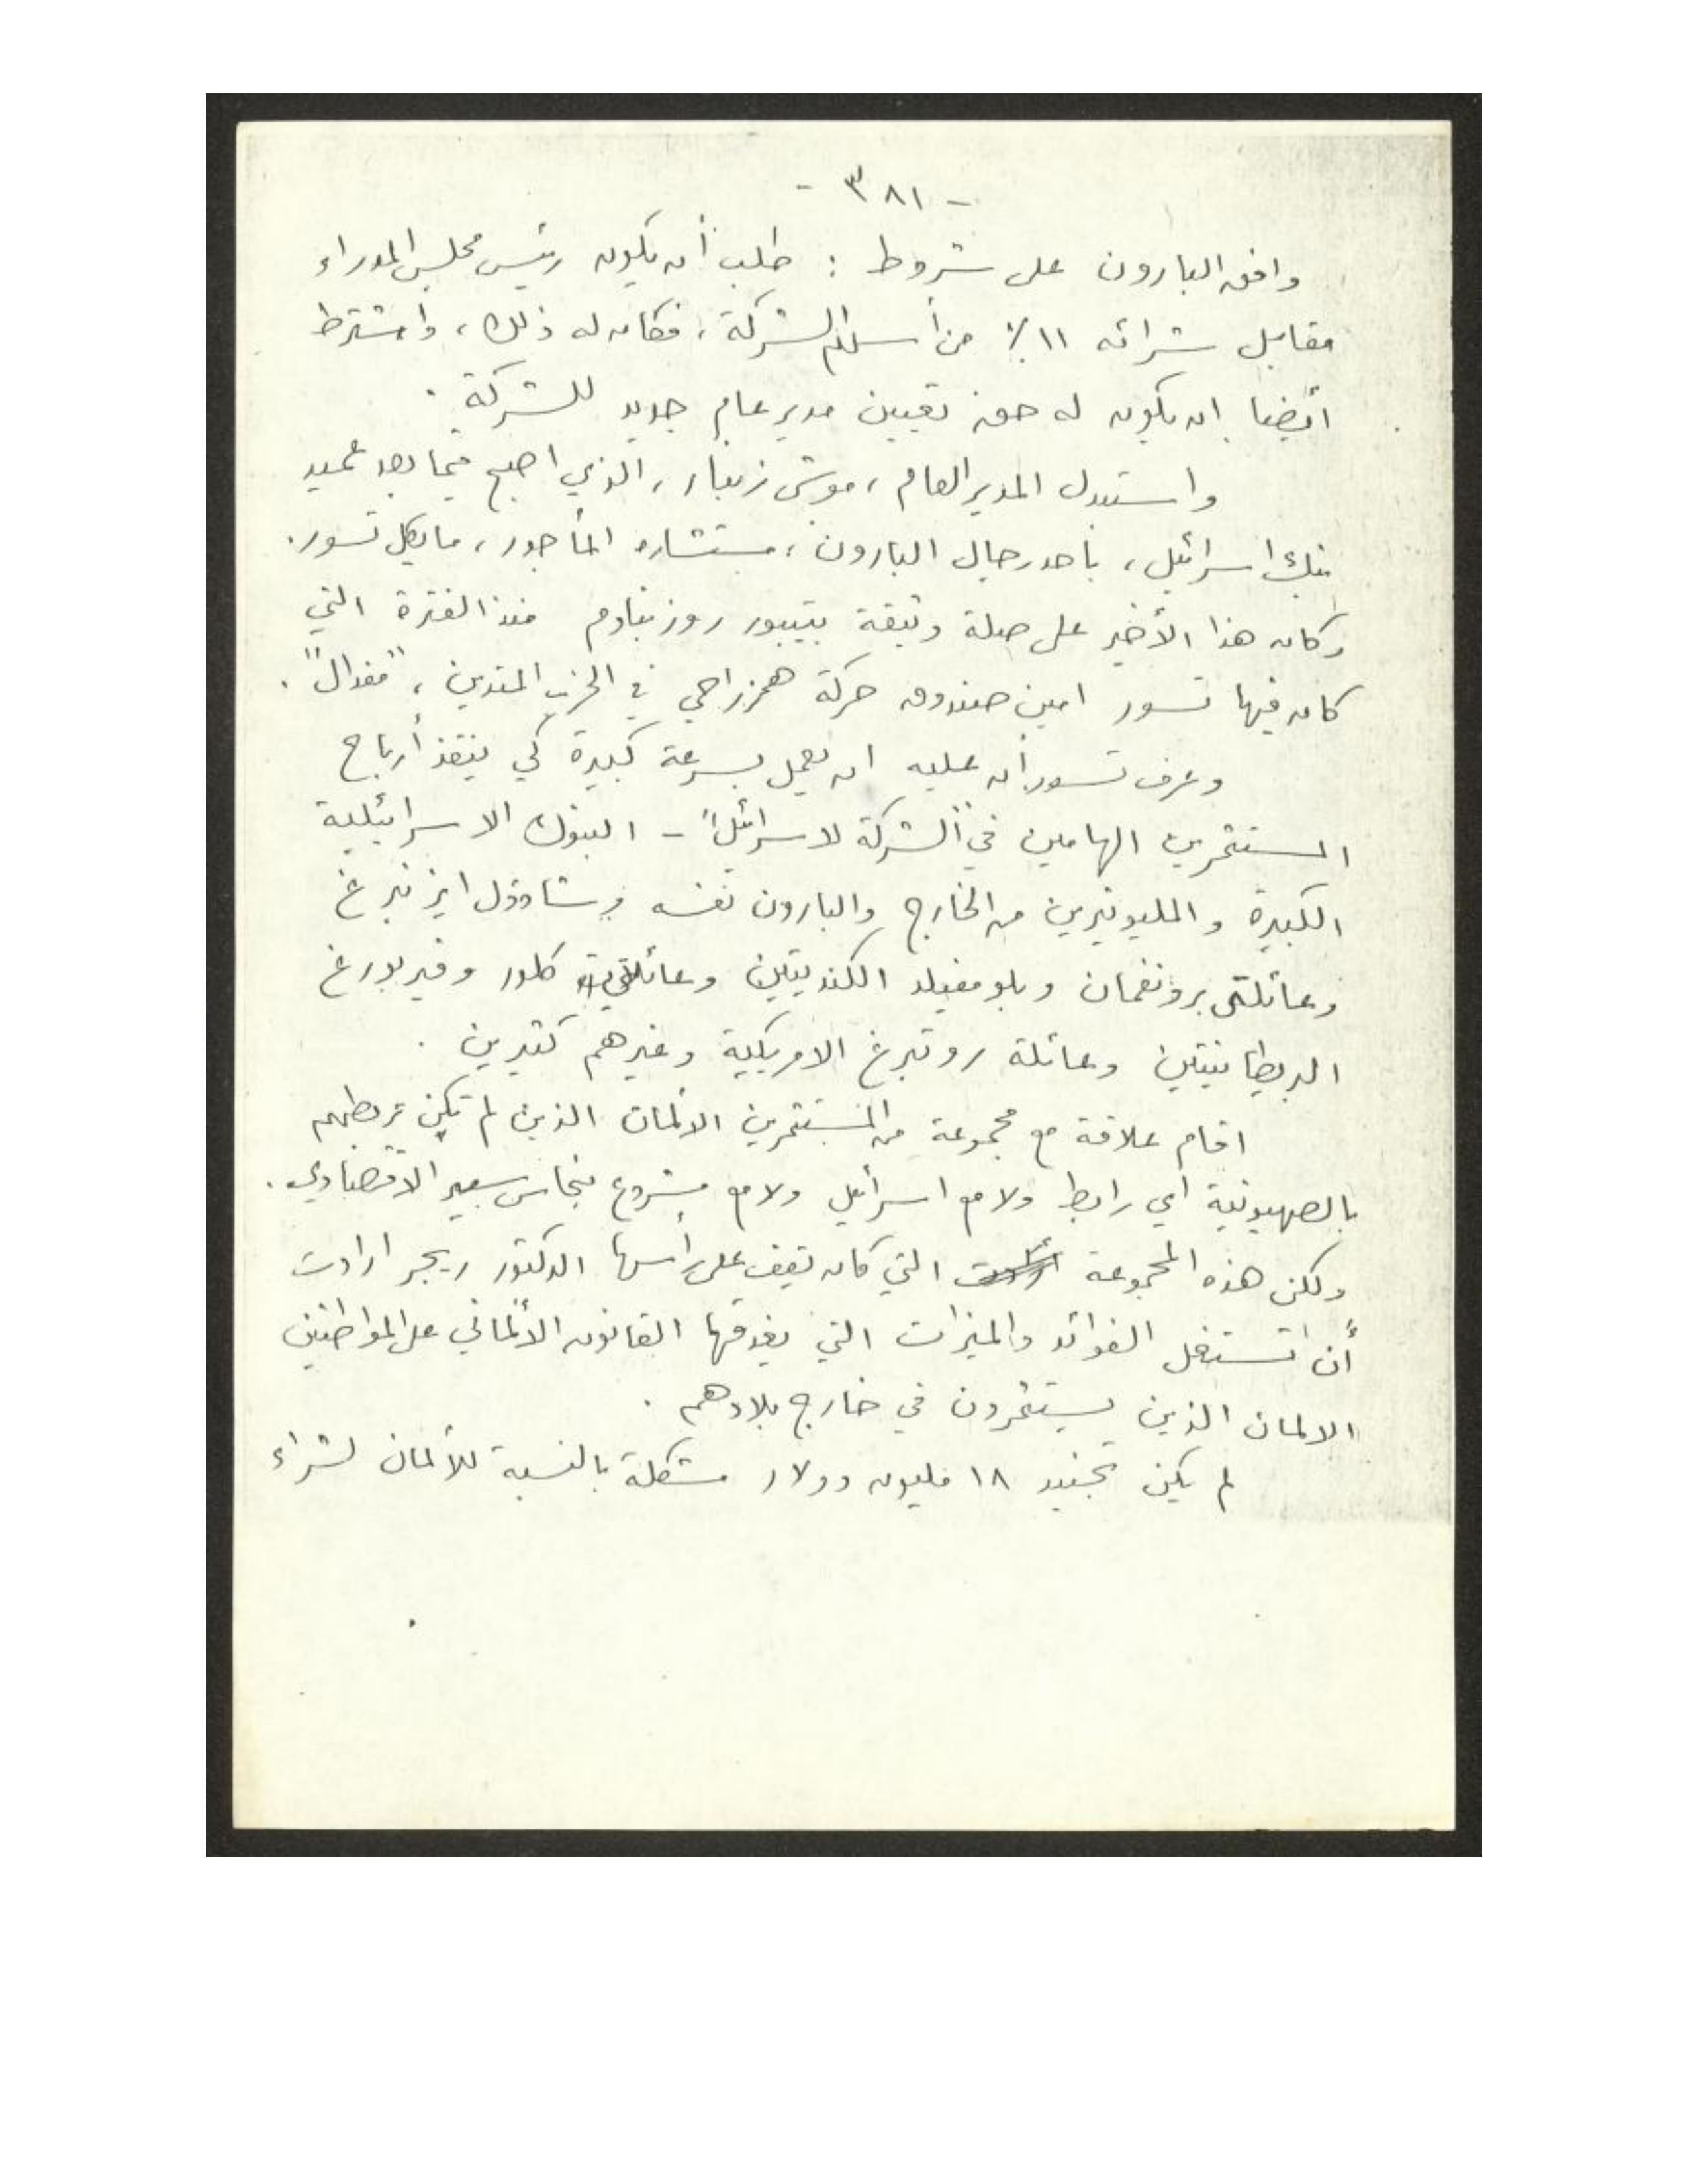 - ٣٨١ -
وافق البارون على شروط : طلب أن يكون رئيس مجلس المدراء
مقابل شرائه ١١٪ من أسهم الشركة، فكان له ذلك، واشترط
ايضا ان يكون له حق تعيين مدير عام جديد للشركة .
واستبدل المدير العام، موشي زنبار، الذي اصبح فيما بعد عميد
بنك اسرائيل، بأحد رجال البارون، مستشاره المأجور، مايكل تسور.
وكان هذا الأخير على صلة وثيقة بتيبور روزنباوم منذ الفترة التي
كان فيها تسور امين صندوق حركة همزراحي في الحزب المتدين، "مفدال" .
وعرف تسور أن عليه ان يعمل بسرعة كبيرة كي ينقذ أرباح
المستثمرين الهامين في "الشركة لاسرائيل" - البنوك الاسرائيلية
الكبيرة والمليونيرين من الخارج والبارون نفسه وشاؤول ايزنبرغ
وعائلتي برونفمان وبلومفيلد الكنديتين وعائلتي كلور وفيربورغ
البريطانيتين وعائلة روتبرغ الامريكية وغيرهم كثيرين .
اقام علاقة مع مجموعة من المستثمرين الالمان الذين لم تكن تربطهم
بالصهيونية أي رابط ولا مع اسرائيل ولا مع مشروع بنحاس سبير الاقتصادي .
ولكن هذه المجموعة التي كان يقف على رأسها الدكتور ريجر ارادت
أن تستغل الفوائد والميزات التي يغدقها القانون الألماني على المواطنين
الالمان الذين يستثمرون في خارج بلادهم .
لم يكن تجنيد ١٨ مليون دولار مشكلة بالنسبة للألمان لشراء